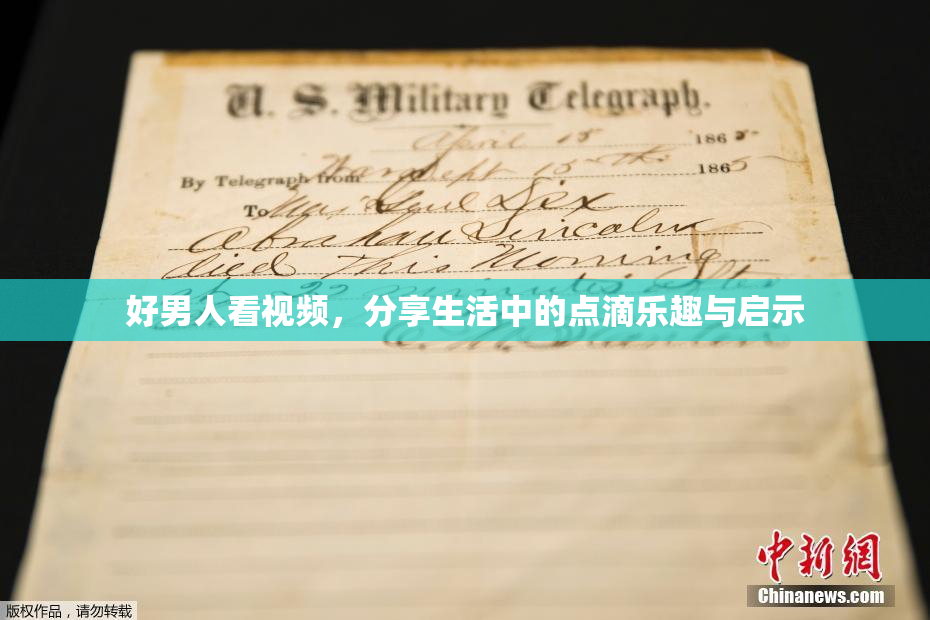 U. S. Military Telegraph.
April 15 1865
By Telegraph from War Dept 15th 1865
To Maj Genl Dix
Abraham Lincoln
died This Morning
22 minutes after
好男人看视频，分享生活中的点滴乐趣与启示
中新网
Chinanews.com
版权作品，请勿转载